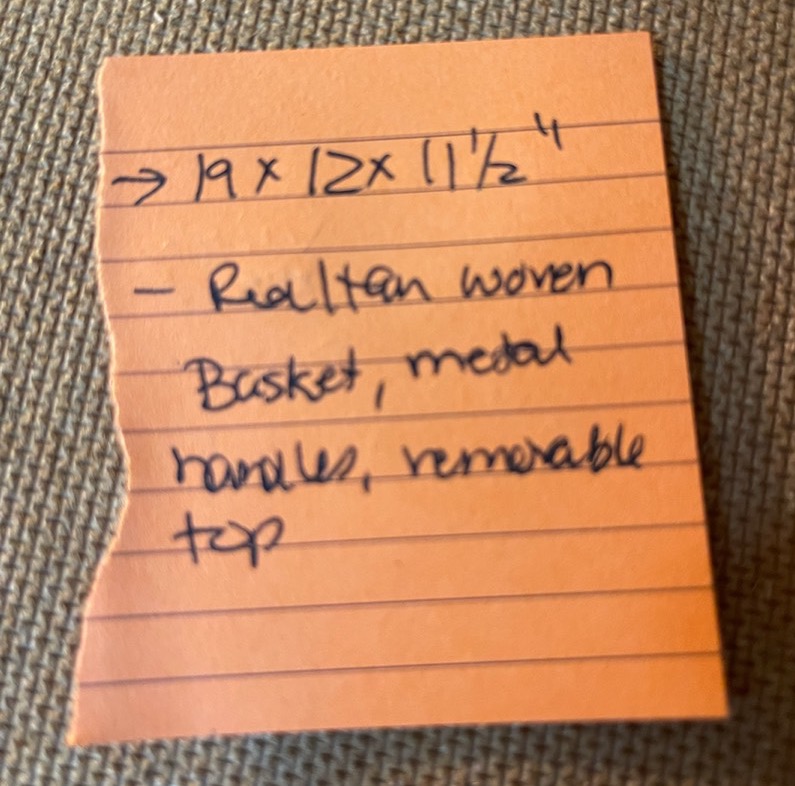 → 19 x 12 x 11 1/2"
- Red/tan woven
Basket, metal
handles, removable
top